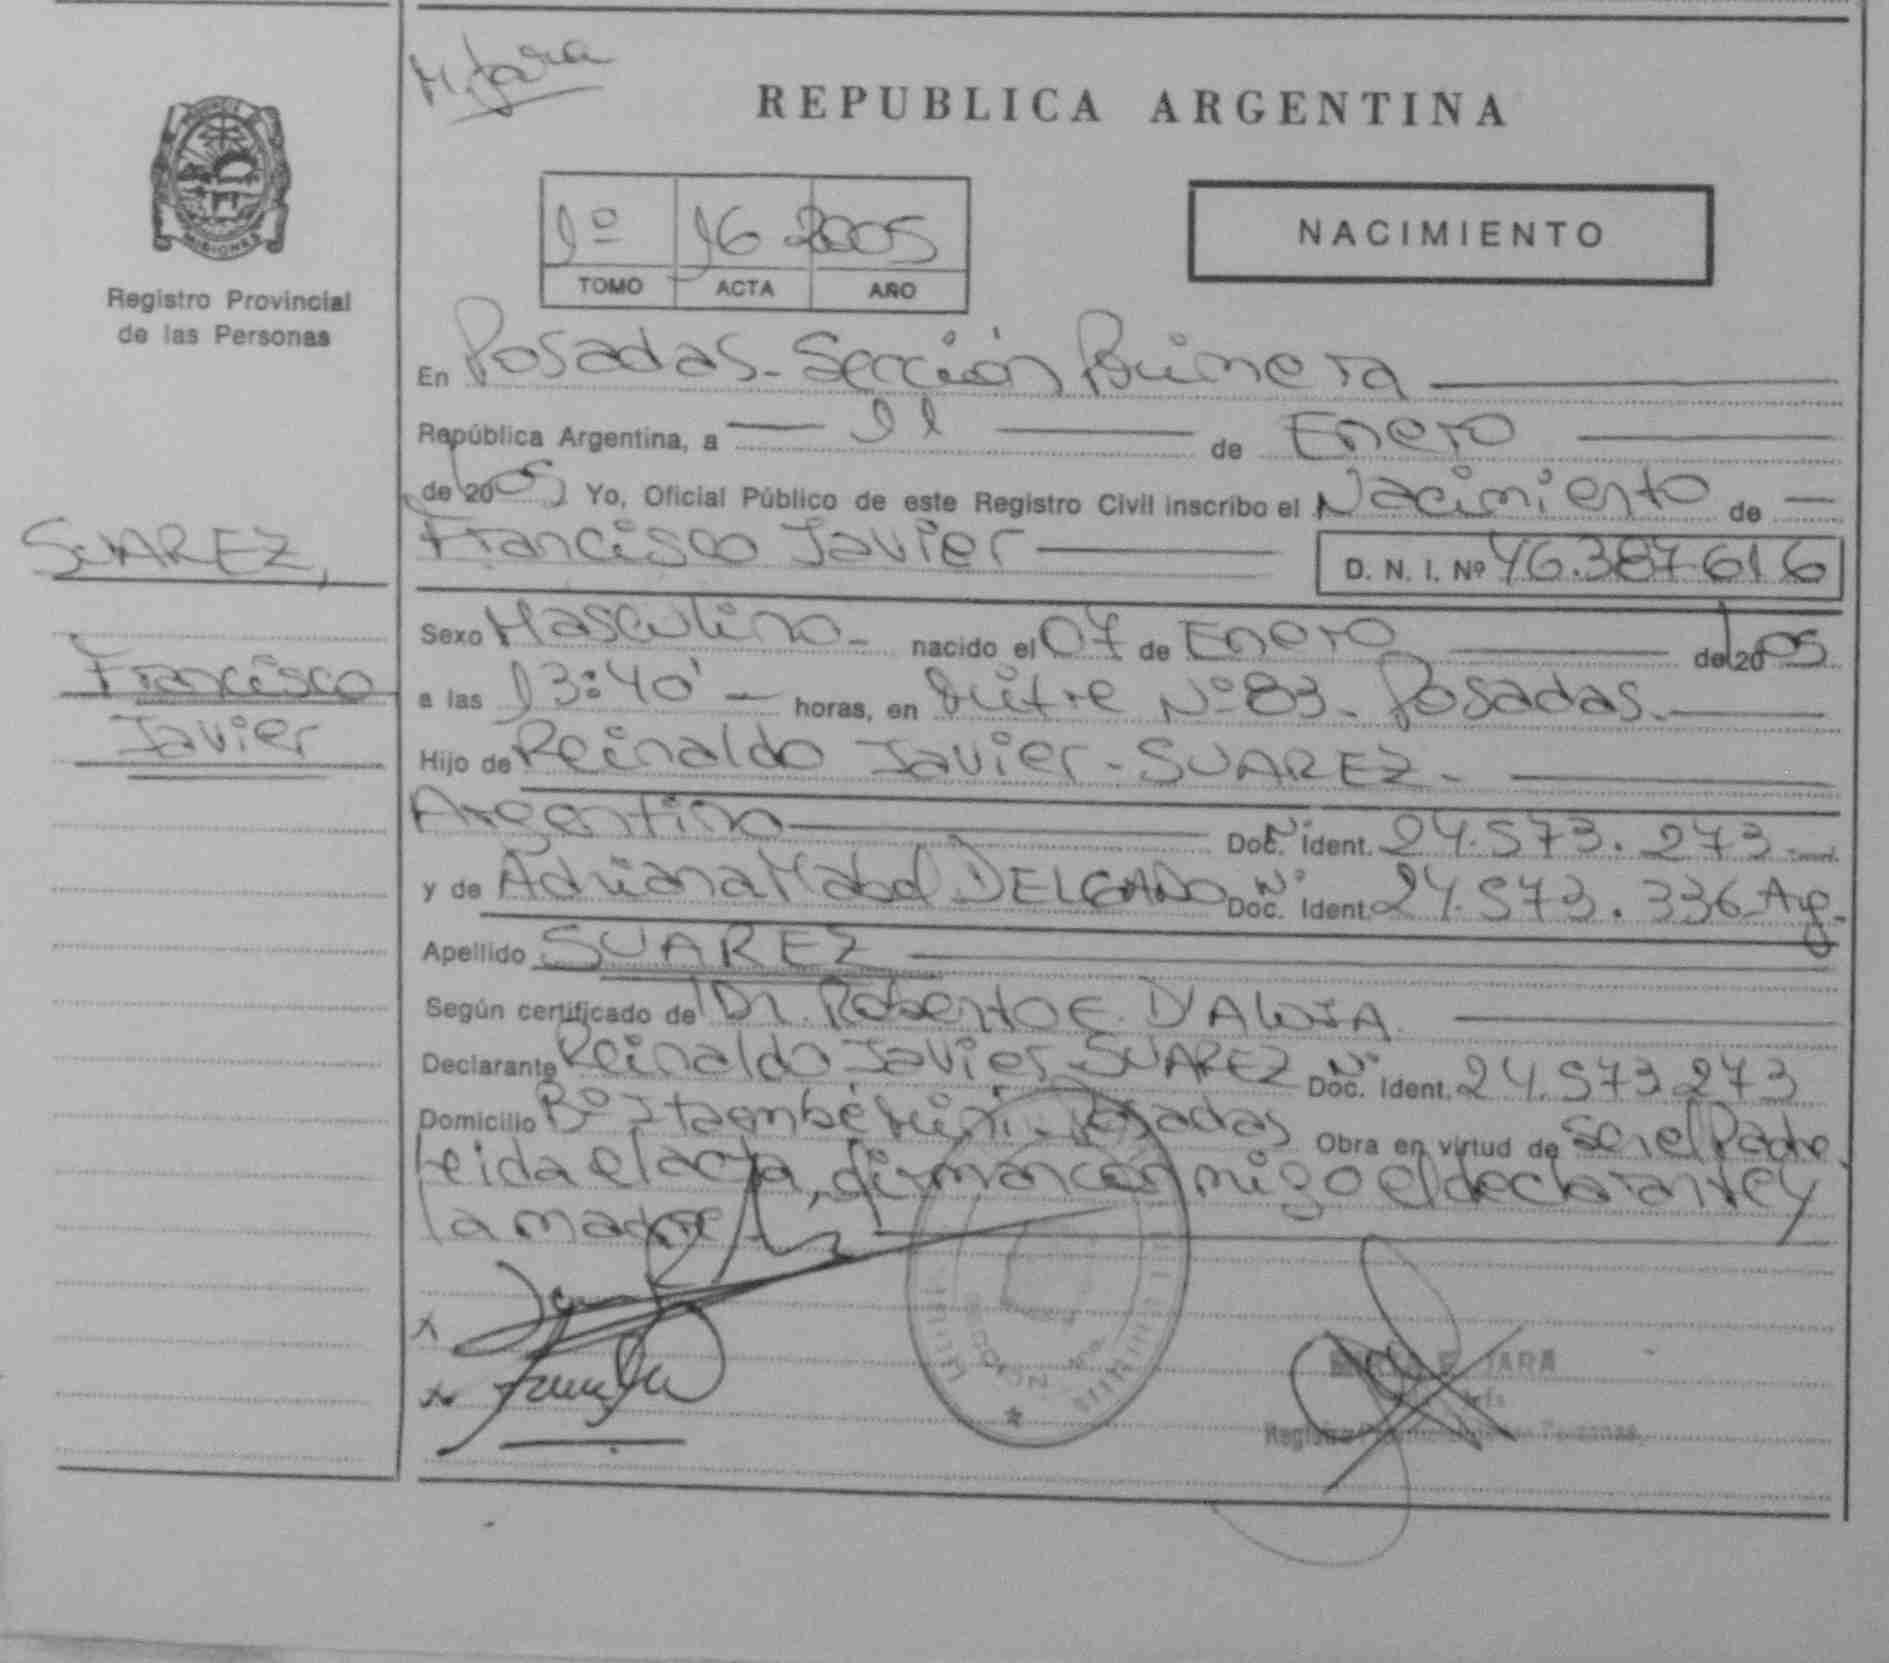 M. Jara
REPUBLICA ARGENTINA
MISIONES
Registro Provincial
de las Personas
1º 16 2005
TOMO ACTA AÑO
NACIMIENTO
En Posadas - Sección Primera
República Argentina, a 11 de Enero
de 2005 Yo, Oficial Público de este Registro Civil inscribo el Nacimiento de
Francisco Javier D. N. I. Nº 46.387.616
SUAREZ,
Francisco
Javier
Sexo Masculino - nacido el 07 de Enero de 2005
a las 13:40' horas, en Mitre Nº 83 - Posadas.
Hijo de Reinaldo Javier - SUAREZ -
Argentino Nº Doc. Ident. 24.573.273
y de Adriana Mabel DELGADO Nº Doc. Ident. 24.573.336 Arg.
Apellido SUAREZ
Según certificado de Dr. Roberto E.
Declarante Reinaldo Javier SUAREZ Nº Doc. Ident. 24.573.273
Domicilio Bº Itaembé Miní - Posadas Obra en virtud de ser el Padre.
Leida el acta, firman conmigo el declarante y
la madre
SECCION
JARA
Jefe
Registro Personas